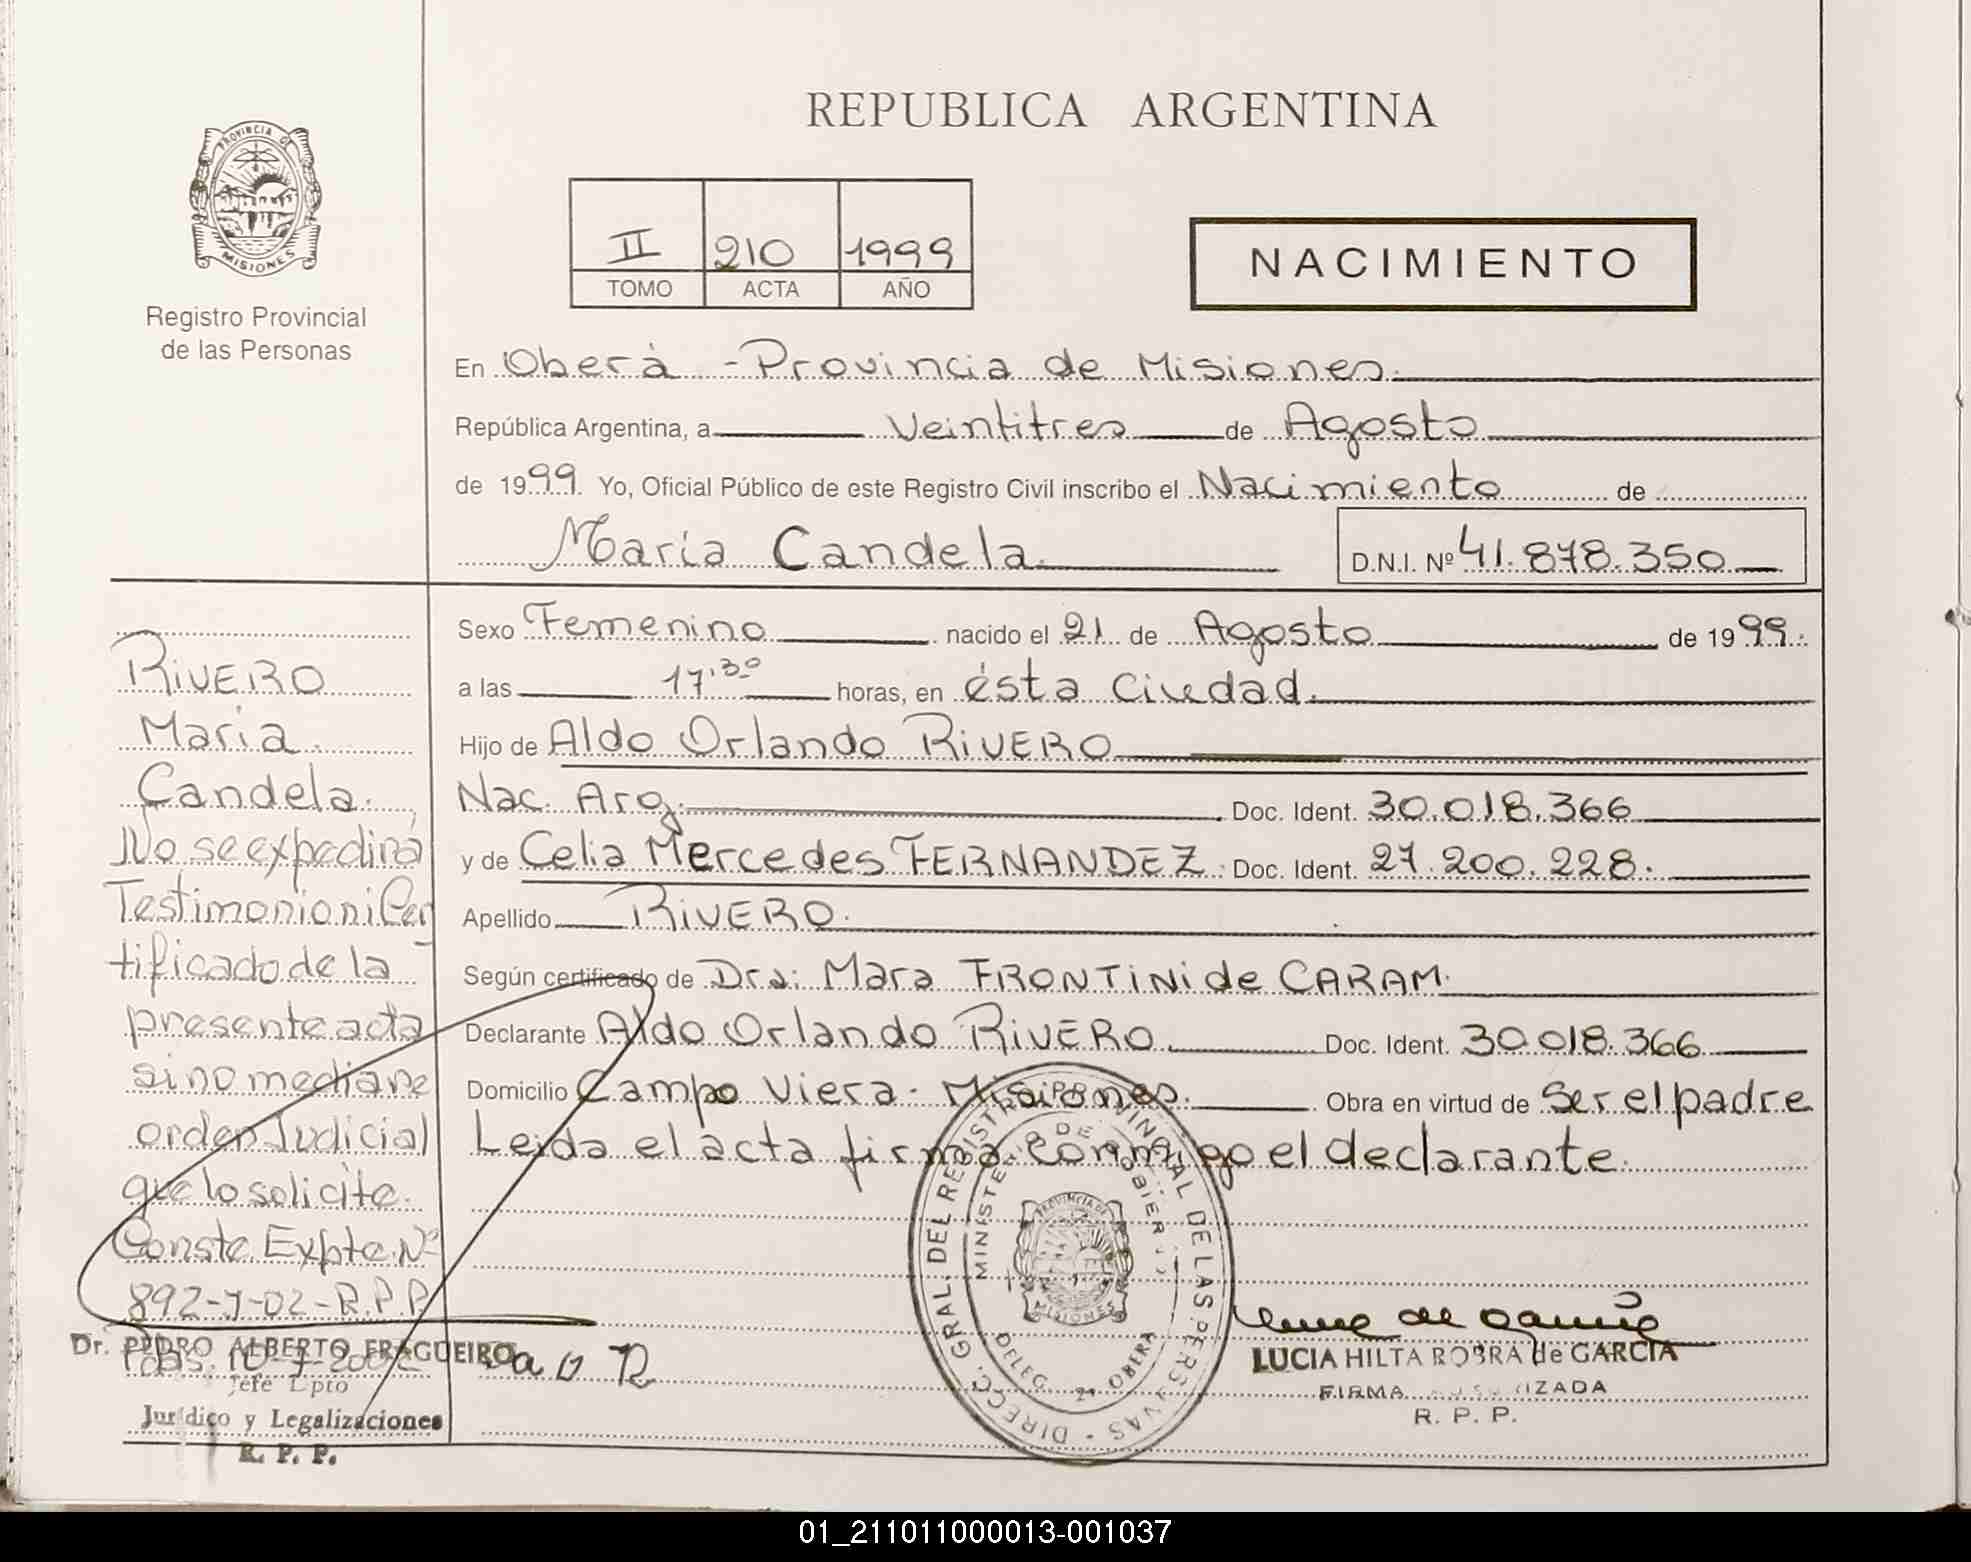 REPUBLICA ARGENTINA
PROVINCIA DE
MISIONES
Registro Provincial
de las Personas
II 210 1999
TOMO ACTA AÑO
NACIMIENTO
En Oberá - Provincia de Misiones.
República Argentina, a Veintitres de Agosto
de 1999. Yo, Oficial Público de este Registro Civil inscribo el Nacimiento de
María Candela.
D.N.I. Nº 41.878.350
Sexo Femenino nacido el 21 de Agosto de 1999.
a las 17'30 horas, en ésta Ciudad.
Hijo de Aldo Orlando RIVERO
Nac. Arg. Doc. Ident. 30.018.366
y de Celia Mercedes FERNANDEZ. Doc. Ident. 27.200.228.
Apellido RIVERO.
Según certificado de Dra: Mara FRONTINI de CARAM.
Declarante Aldo Orlando RIVERO. Doc. Ident. 30.018.366
Domicilio Campo Viera - Misiones. Obra en virtud de Ser el padre
Leida el acta firma conmigo el declarante.
RIVERO
Maria
Candela.
No se expedirá
Testimonio ni Cer
tificado de la
presente acta
sino mediane
orden Judicial
que lo solicite.
Conste Expte. Nº
892-J-02-R.P.P
Pdas. 10-7-2002
Dr. PEDRO ALBERTO FRAGUEIRO
Jefe Dpto
Jurídico y Legalizaciones
R. P. P.
DIRECC. GRAL. DEL REGISTRO PROVINCIAL DE LAS PERSONAS
MINISTERIO DE GOBIERNO
PROVINCIA DE
MISIONES
DELEG. 2ª OBERA
LUCIA HILTA ROBRA de GARCIA
FIRMA AUTORIZADA
R. P. P.
01_211011000013-001037